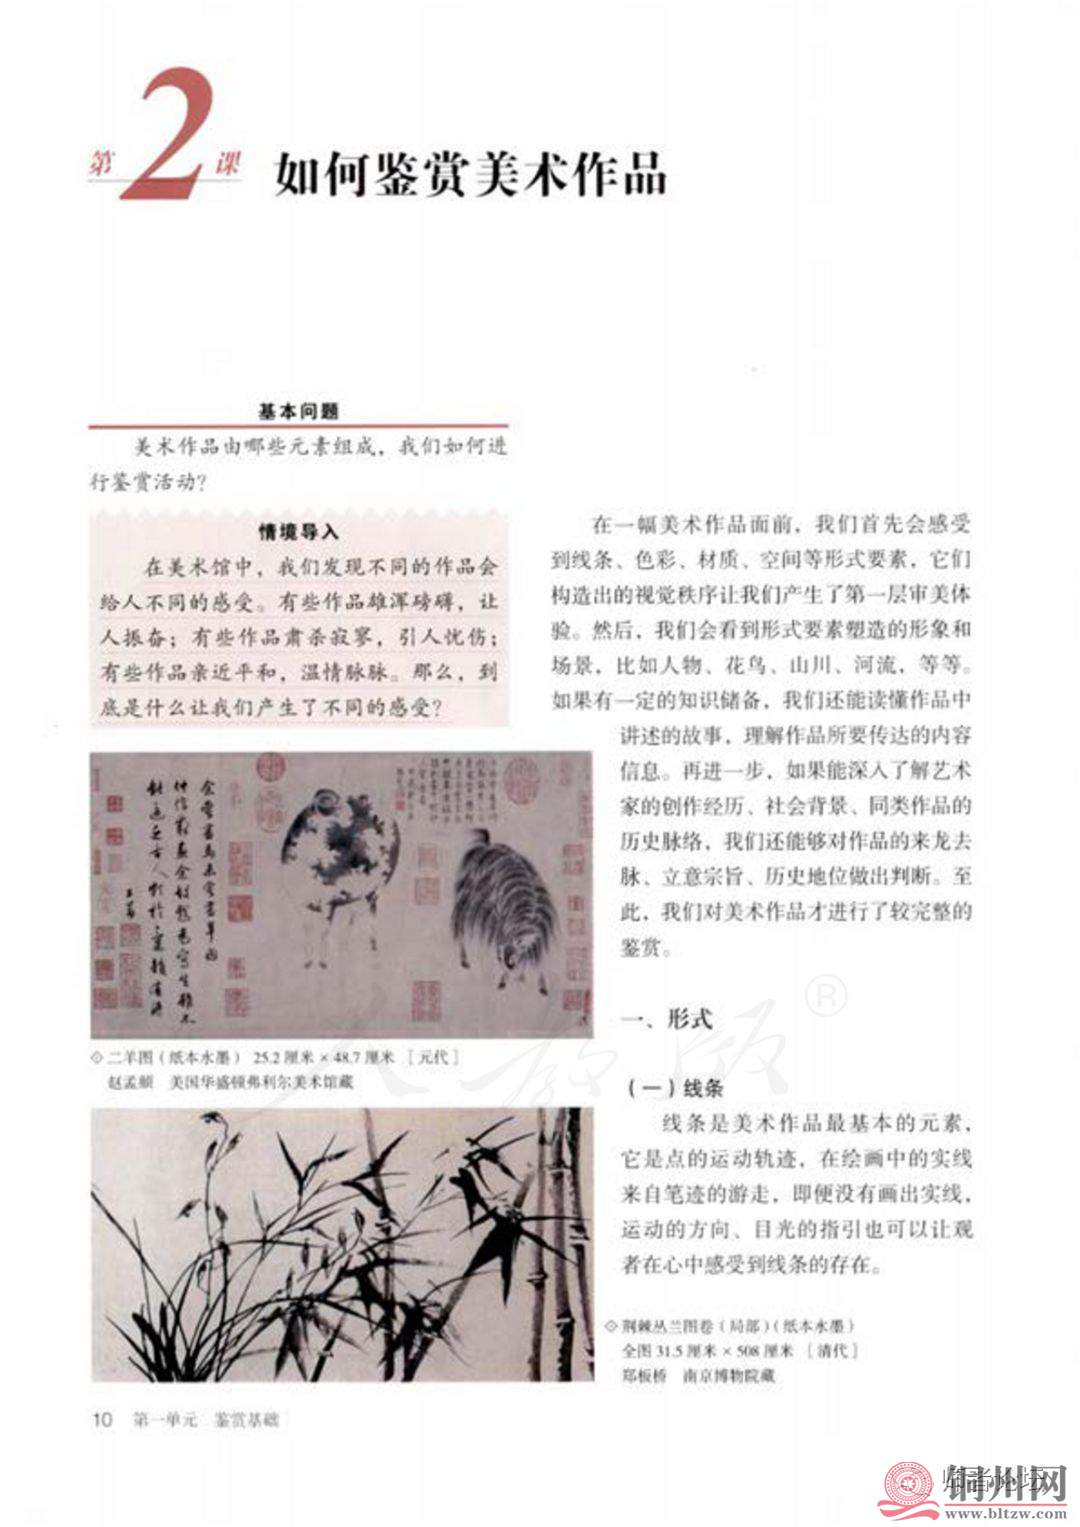 第2课 如何鉴赏美术作品
基本问题
美术作品由哪些元素组成，我们如何进
行鉴赏活动？
情境导入
在美术馆中，我们发现不同的作品会
给人不同的感受。有些作品雄浑磅礴，让
人振奋；有些作品肃杀寂寥，引人忧伤；
有些作品亲近平和，温情脉脉。那么，到
底是什么让我们产生了不同的感受？
在一幅美术作品面前，我们首先会感受
到线条、色彩、材质、空间等形式要素，它们
构造出的视觉秩序让我们产生了第一层审美体
验。然后，我们会看到形式要素塑造的形象和
场景，比如人物、花鸟、山川、河流，等等。
如果有一定的知识储备，我们还能读懂作品中
讲述的故事，理解作品所要传达的内容
信息。再进一步，如果能深入了解艺术
家的创作经历、社会背景、同类作品的
历史脉络，我们还能够对作品的来龙去
脉、立意宗旨、历史地位做出判断。至
此，我们对美术作品才进行了较完整的
鉴赏。
余尝画马未尝画羊因
仲信求画余故戏为写生虽不
能逼近古人颇于气韵有得
子昂
◇二羊图（纸本水墨） 25.2厘米×48.7厘米 ［元代］
赵孟頫 美国华盛顿弗利尔美术馆藏
一、形式
（一）线条
线条是美术作品最基本的元素，
它是点的运动轨迹，在绘画中的实线
来自笔迹的游走，即便没有画出实线，
运动的方向、目光的指引也可以让观
者在心中感受到线条的存在。
◇荆棘丛兰图卷（局部）（纸本水墨）
全图31.5厘米×508厘米 ［清代］
郑板桥 南京博物院藏
10 第一单元 鉴赏基础
人教版®
铜州网
www.bltzw.com